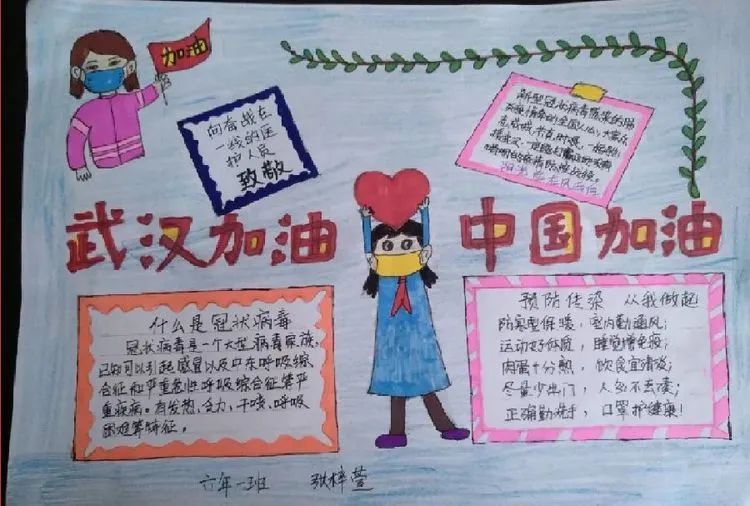 加油
向奋战在
一线的医
护人员
致敬
新型冠状病毒感染的肺
武汉加油
中国加油
什么是冠状病毒
冠状病毒是一个大型病毒家族，
已知可以引起感冒以及中东呼吸综
合征和严重急性呼吸综合征等严
重疾病。有发热、乏力、干咳、呼吸
困难等特征。
预防传染 从我做起
防寒要保暖，室内勤通风；
运动好体质，睡觉增免疫；
肉蛋十分熟，饮食宜清淡；
尽量少出门，人多不去凑；
正确勤洗手，口罩护健康！
六年一班 张梓萱